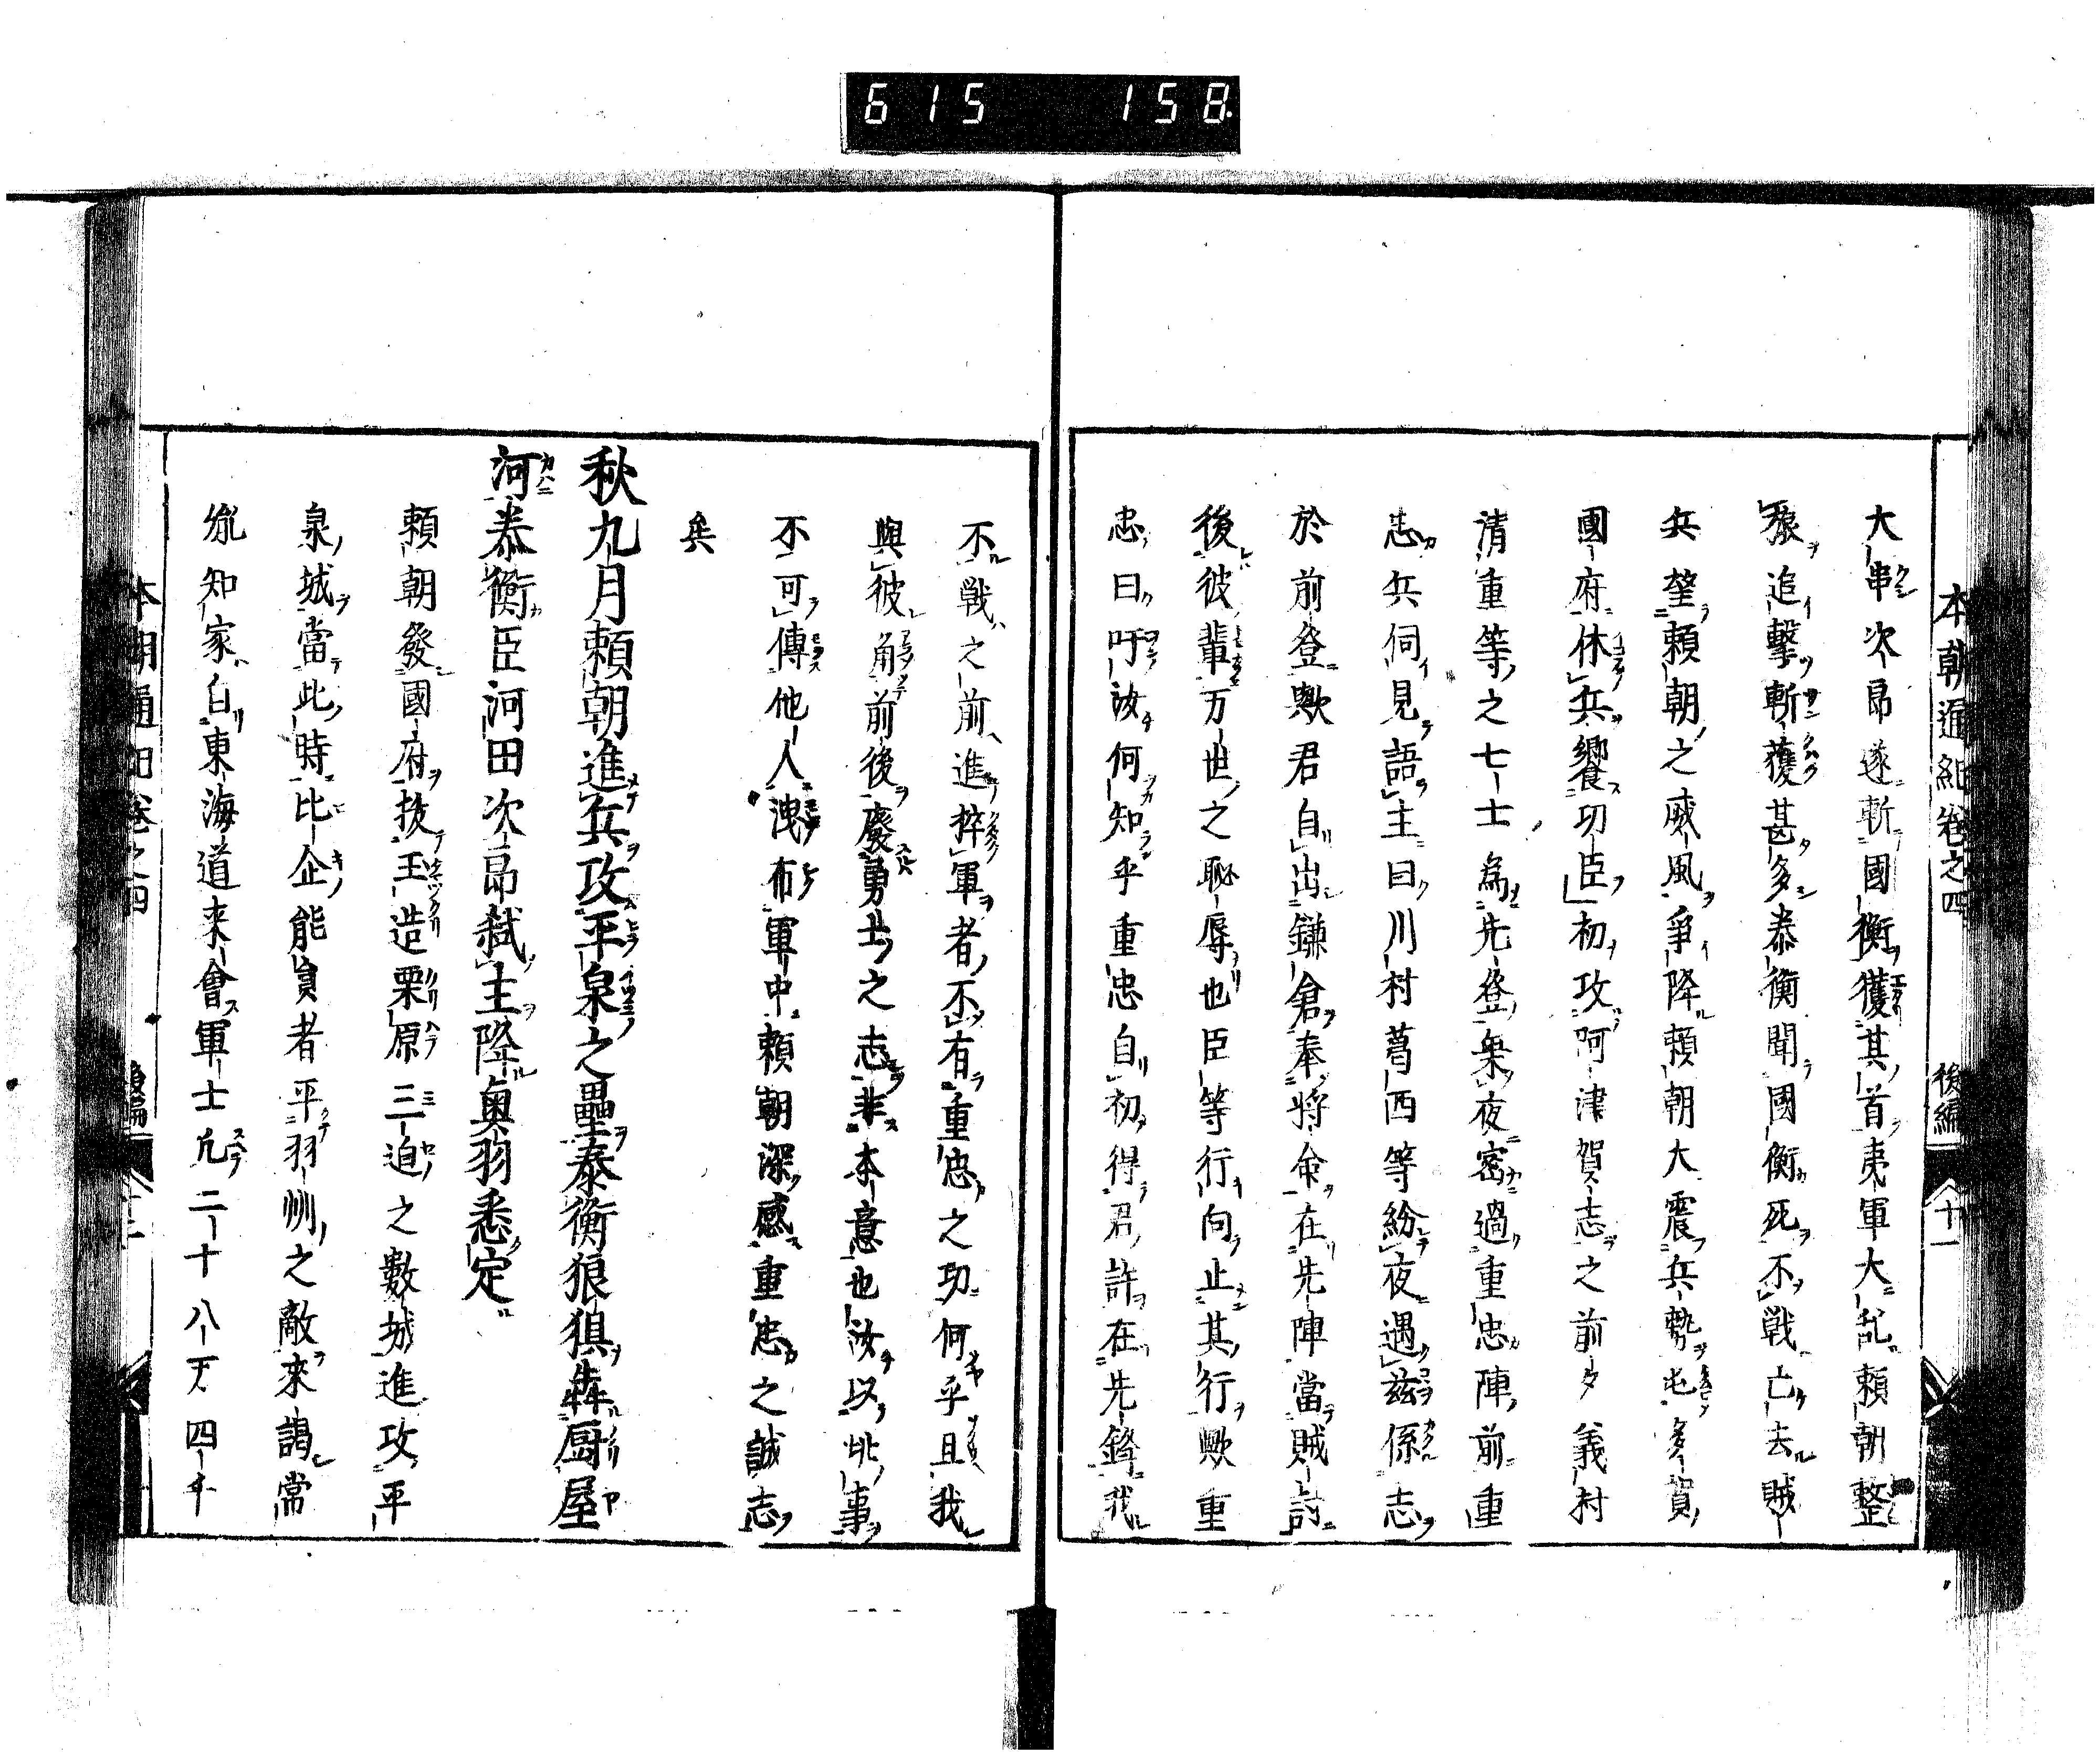 615 158
本朝通紀卷之四 後編 十一
大串次郎遂斬國衡獲其首夷軍大乱頼朝整
旅追擊斬獲甚多泰衡聞國衡死不戦亡去賊
兵望頼朝之威風爭降頼朝大震兵勢屯多賀
國府休兵饗功臣初攻阿津賀志之前夕義村
清重等之七士為先登衆夜密過重忠陣前重
忠兵伺見語主曰川村葛西等紛夜過茲係志
於前登歟君自出鎌倉奉將命在先陣當賊討
後彼輩万世之恥辱也臣等行向止其行歟重
忠曰吁汝何知乎重忠自初得君許在先鋒我
不戦之前進猝軍者不有重忠之功何乎且我
與彼角前後廢勇士之志非本意也汝以此事
不可傳他人洩布軍中頼朝深感重忠之誠志
矣
秋九月頼朝進兵攻平泉之壘泰衡狼狽犇厨屋
河泰衡臣河田次郎弑主降奥羽悉定
頼朝發國府抜玉造栗原三迫之數城進攻平
泉城當此時比企能員者平羽州之敵來謁常
胤知家自東海道来會軍士凡二十八万四千
本朝通紀卷之四 後編